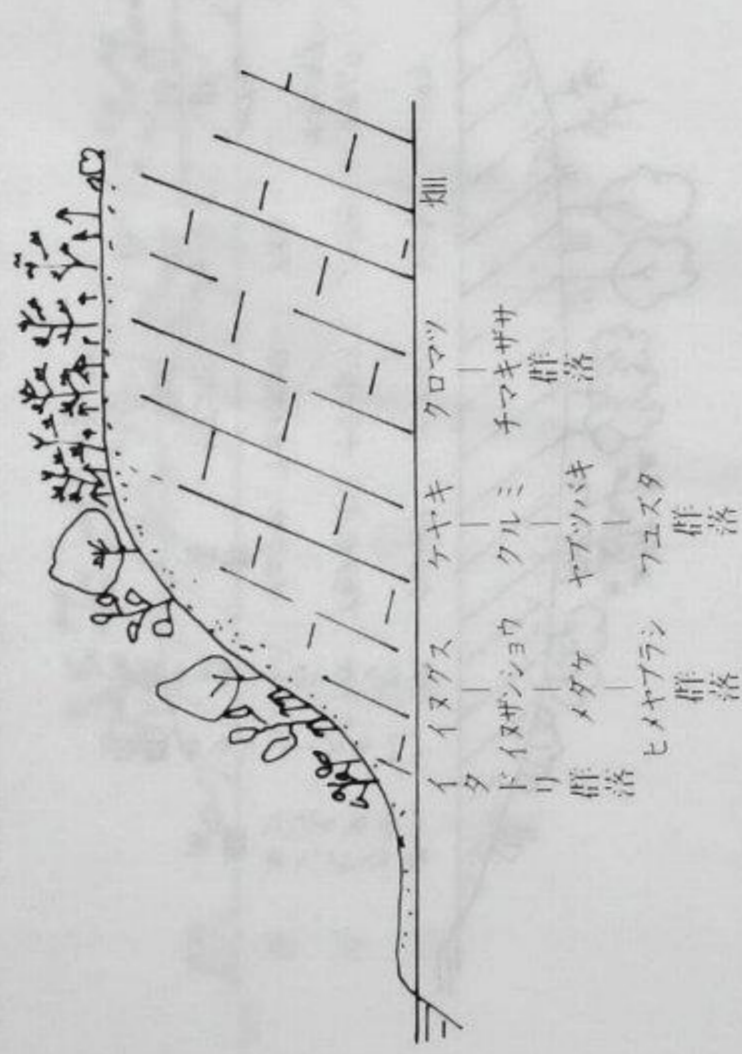 イタドリ群落
イヌグス
イヌザンショウ
メダケ
ヒメヤブラシ
群落
ケヤキ
クルミ
ヤブツバキ
フユズタ
群落
クロマツ
チマキザサ
群落
畑